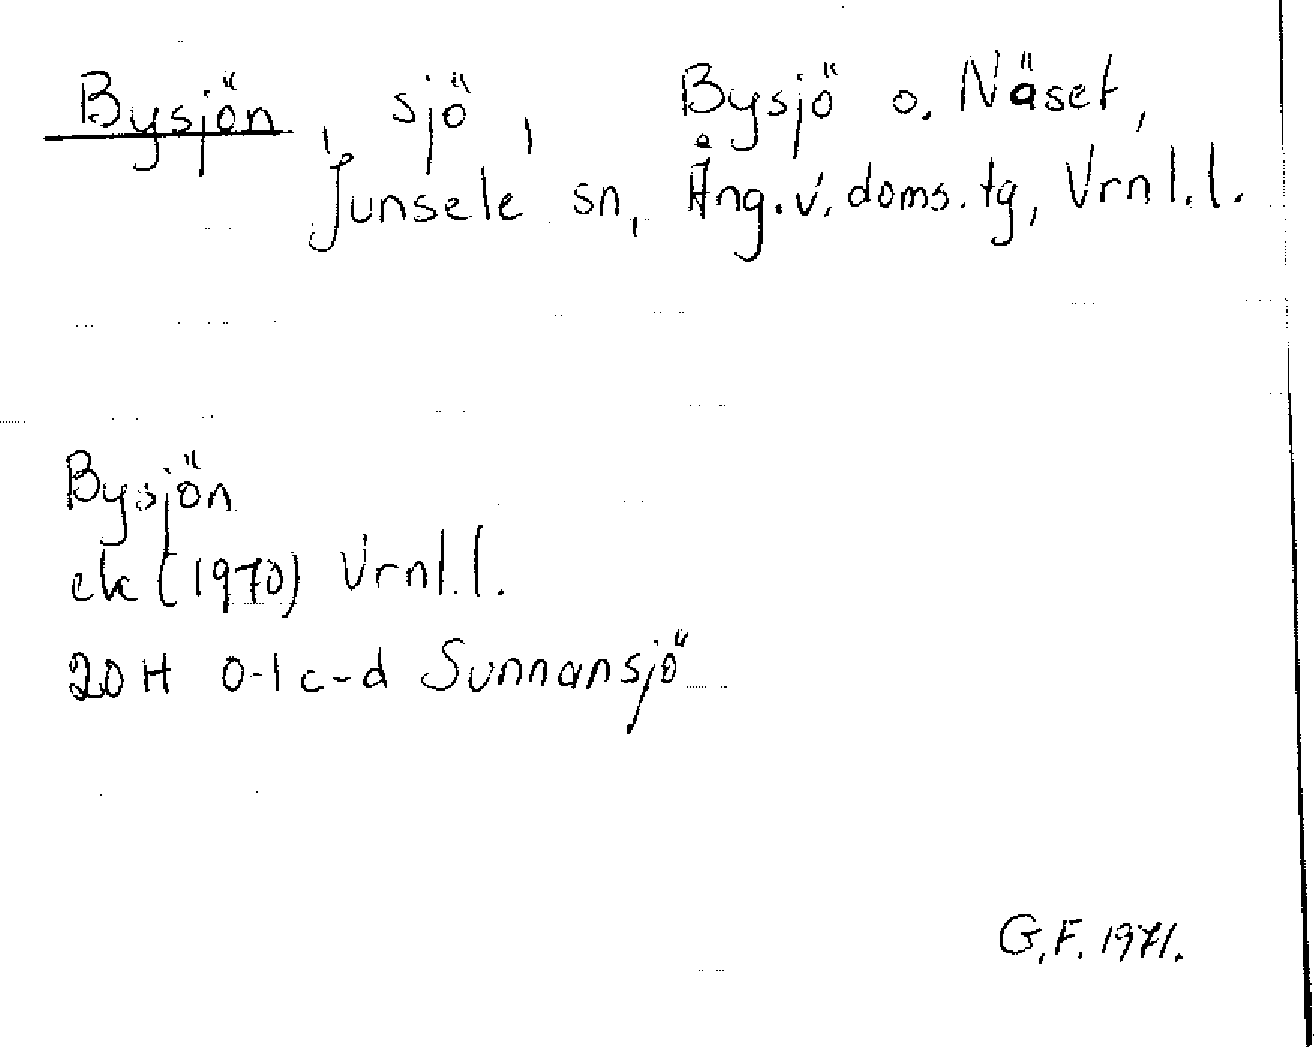 Bysjön, sjö, Bysjö o. Näset,
Junsele sn, Ång.v. doms.tg, Vrnl.l.
Bysjön
ek (1970) Vrnl.l.
20H 0-1c-d Sunnansjö
G.F. 1971.